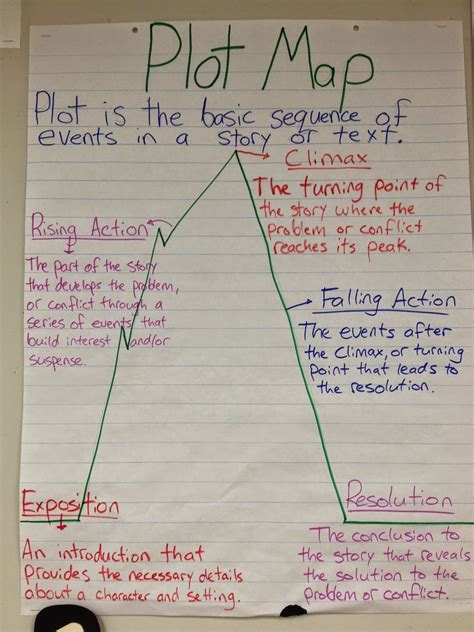 Plot Map
Plot is the basic sequence of
events in a story or text.
Climax
The turning point of
the story where the
problem or conflict
reaches its peak.
Rising Action
The part of the story
that develops the problem,
or conflict through a
series of events that
build interest and/or
suspense.
Falling Action
The events after
the Climax, or turning
Point that leads to
the resolution.
Exposition
An introduction that
Provides the necessary details
about a character and setting.
Resolution
The conclusion to
the story that reveals
the solution to the
problem or conflict.